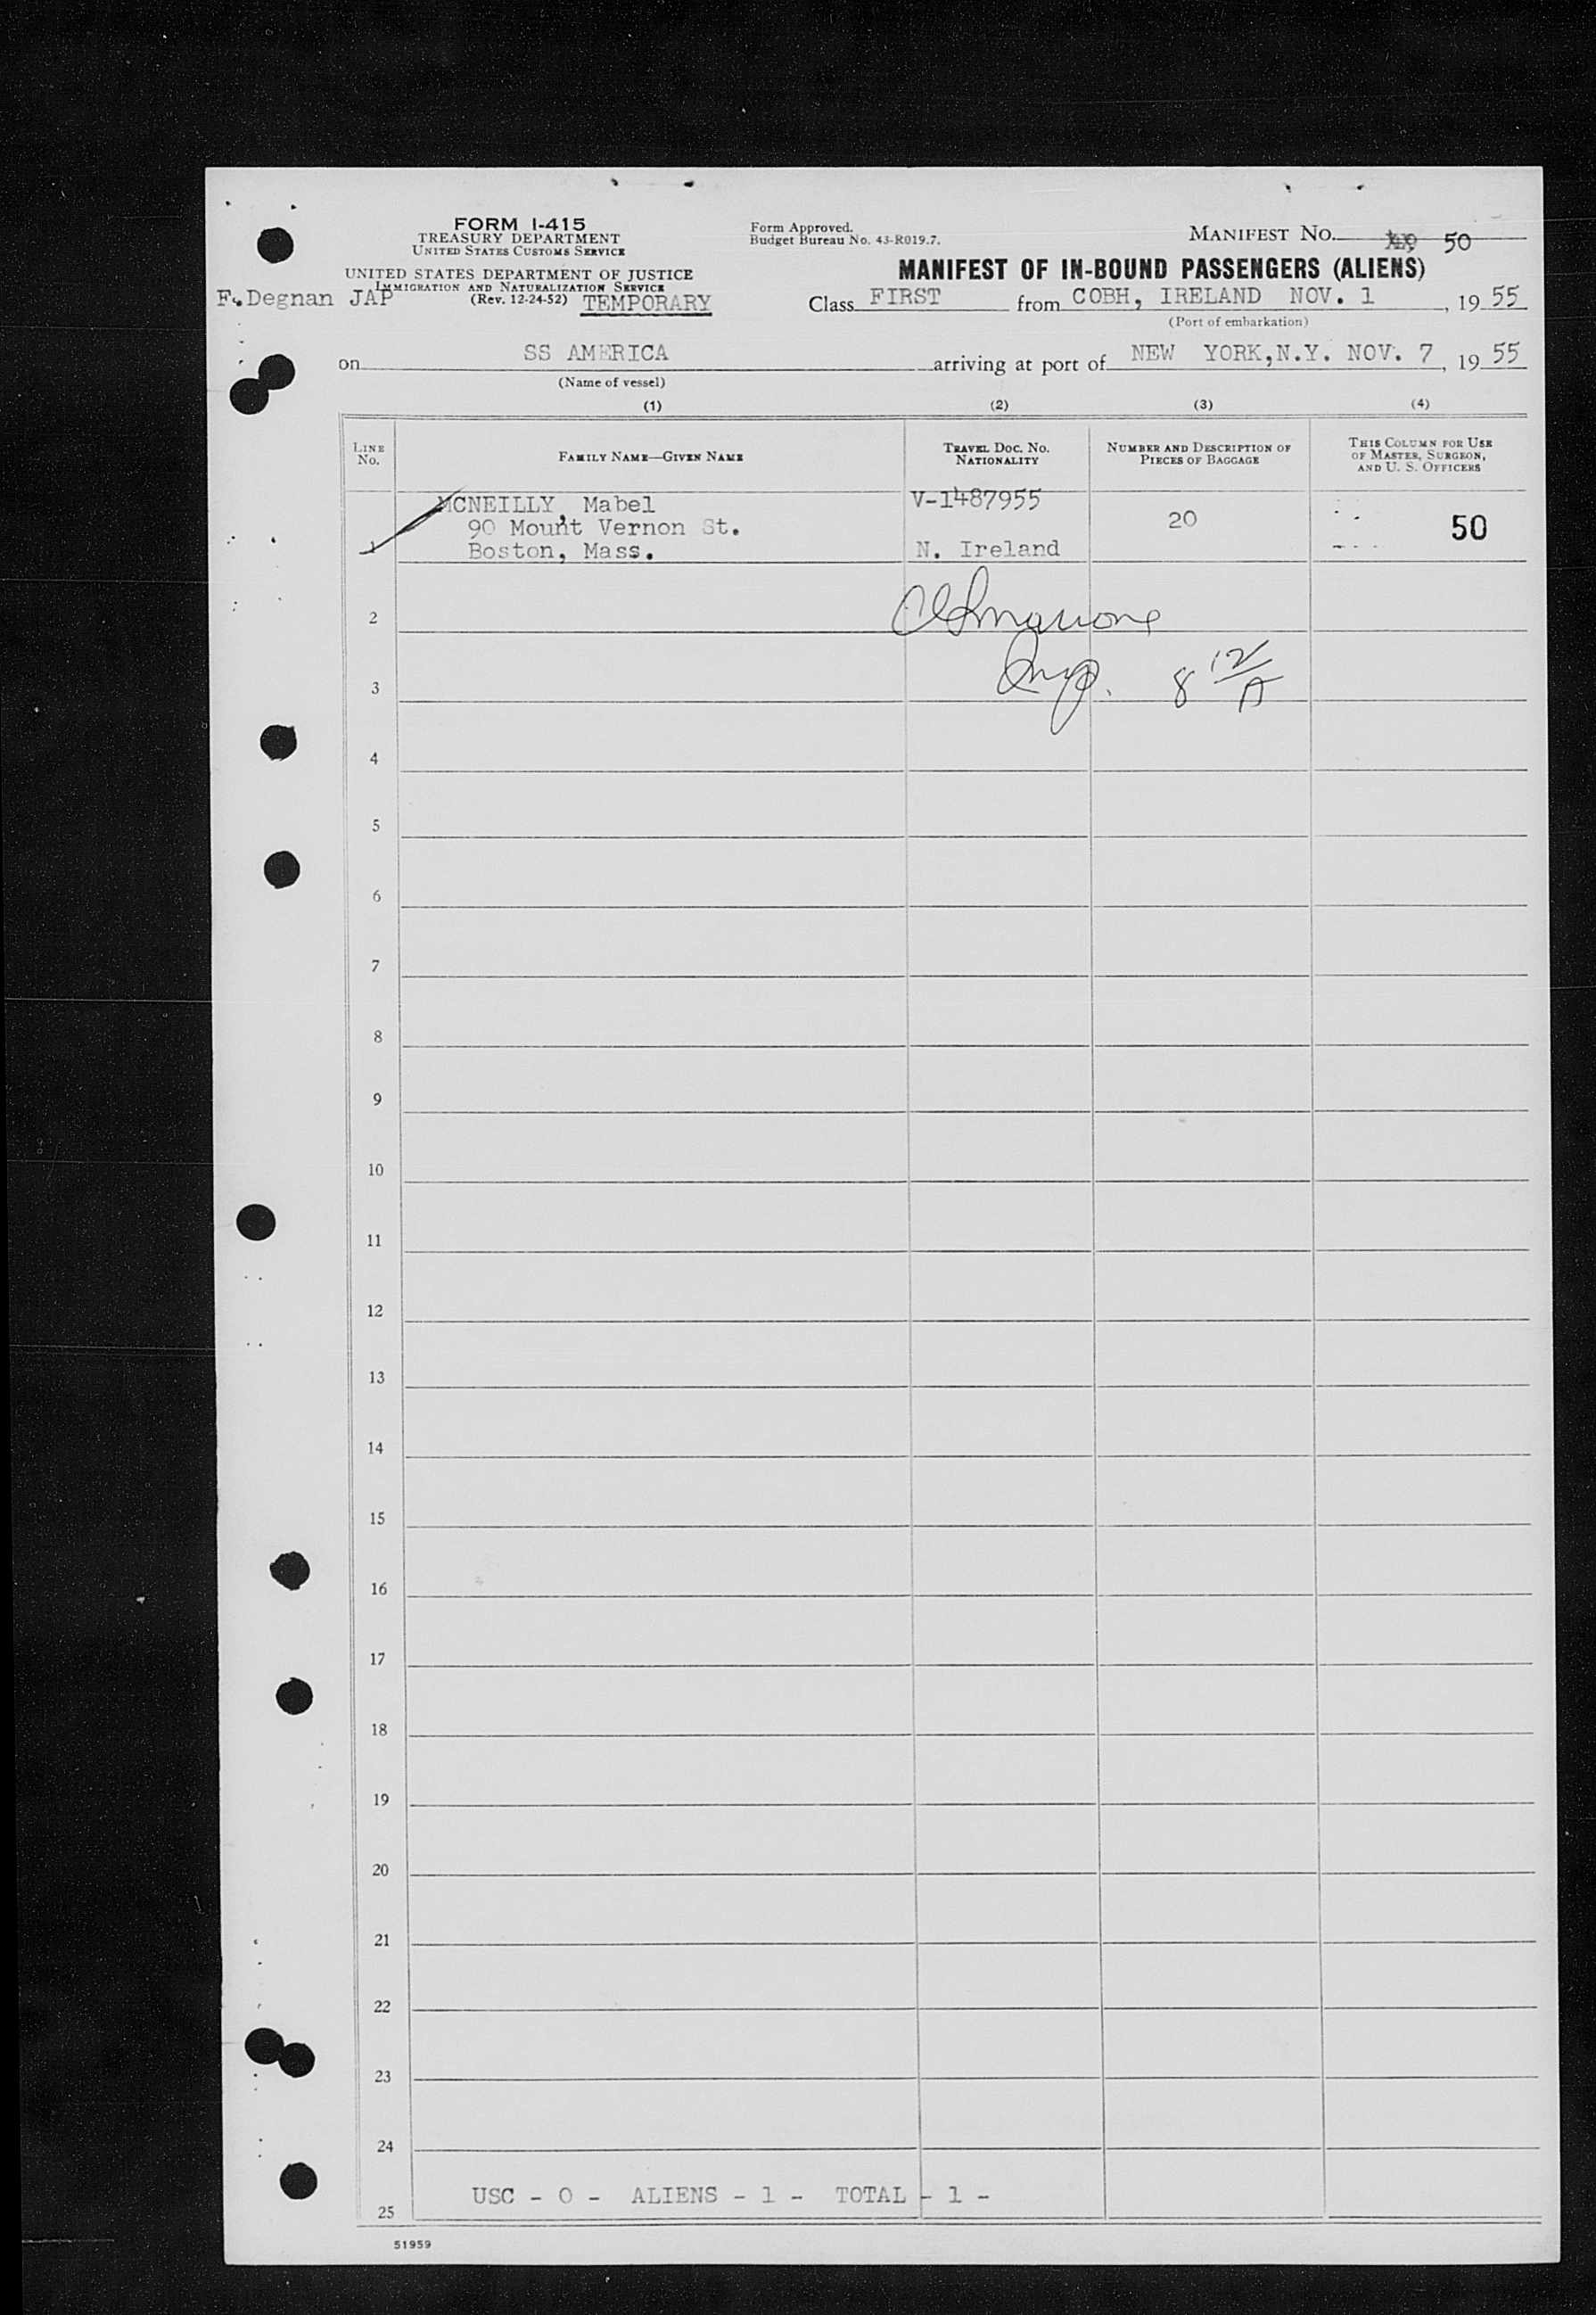 FORM I-415
TREASURY DEPARTMENT
UNITED STATES CUSTOMS SERVICE
UNITED STATES DEPARTMENT OF JUSTICE
IMMIGRATION AND NATURALIZATION SERVICE
(Rev. 12-24-52) TEMPORARY
F. Degnan JAP
Form Approved.
Budget Bureau No. 43-R019.7.
MANIFEST NO. 50
MANIFEST OF IN-BOUND PASSENGERS (ALIENS)
Class FIRST from COBH, IRELAND NOV. 1, 19 55
(Port of embarkation)
on SS AMERICA arriving at port of NEW YORK, N.Y. NOV. 7, 19 55
(Name of vessel)
(1) (2) (3) (4)
LINE NO. FAMILY NAME—GIVEN NAME TRAVEL DOC. NO. NATIONALITY NUMBER AND DESCRIPTION OF PIECES OF BAGGAGE THIS COLUMN FOR USE OF MASTER, SURGEON, AND U. S. OFFICERS
MCNEILLY, Mabel V-1487955
90 Mount Vernon St. 20 50
1 Boston, Mass. N. Ireland
2
3 Insp. 8 12/A
4
5
6
7
8
9
10
11
12
13
14
15
16
17
18
19
20
21
22
23
24
25 USC - 0 - ALIENS - 1 - TOTAL - 1 -
51959